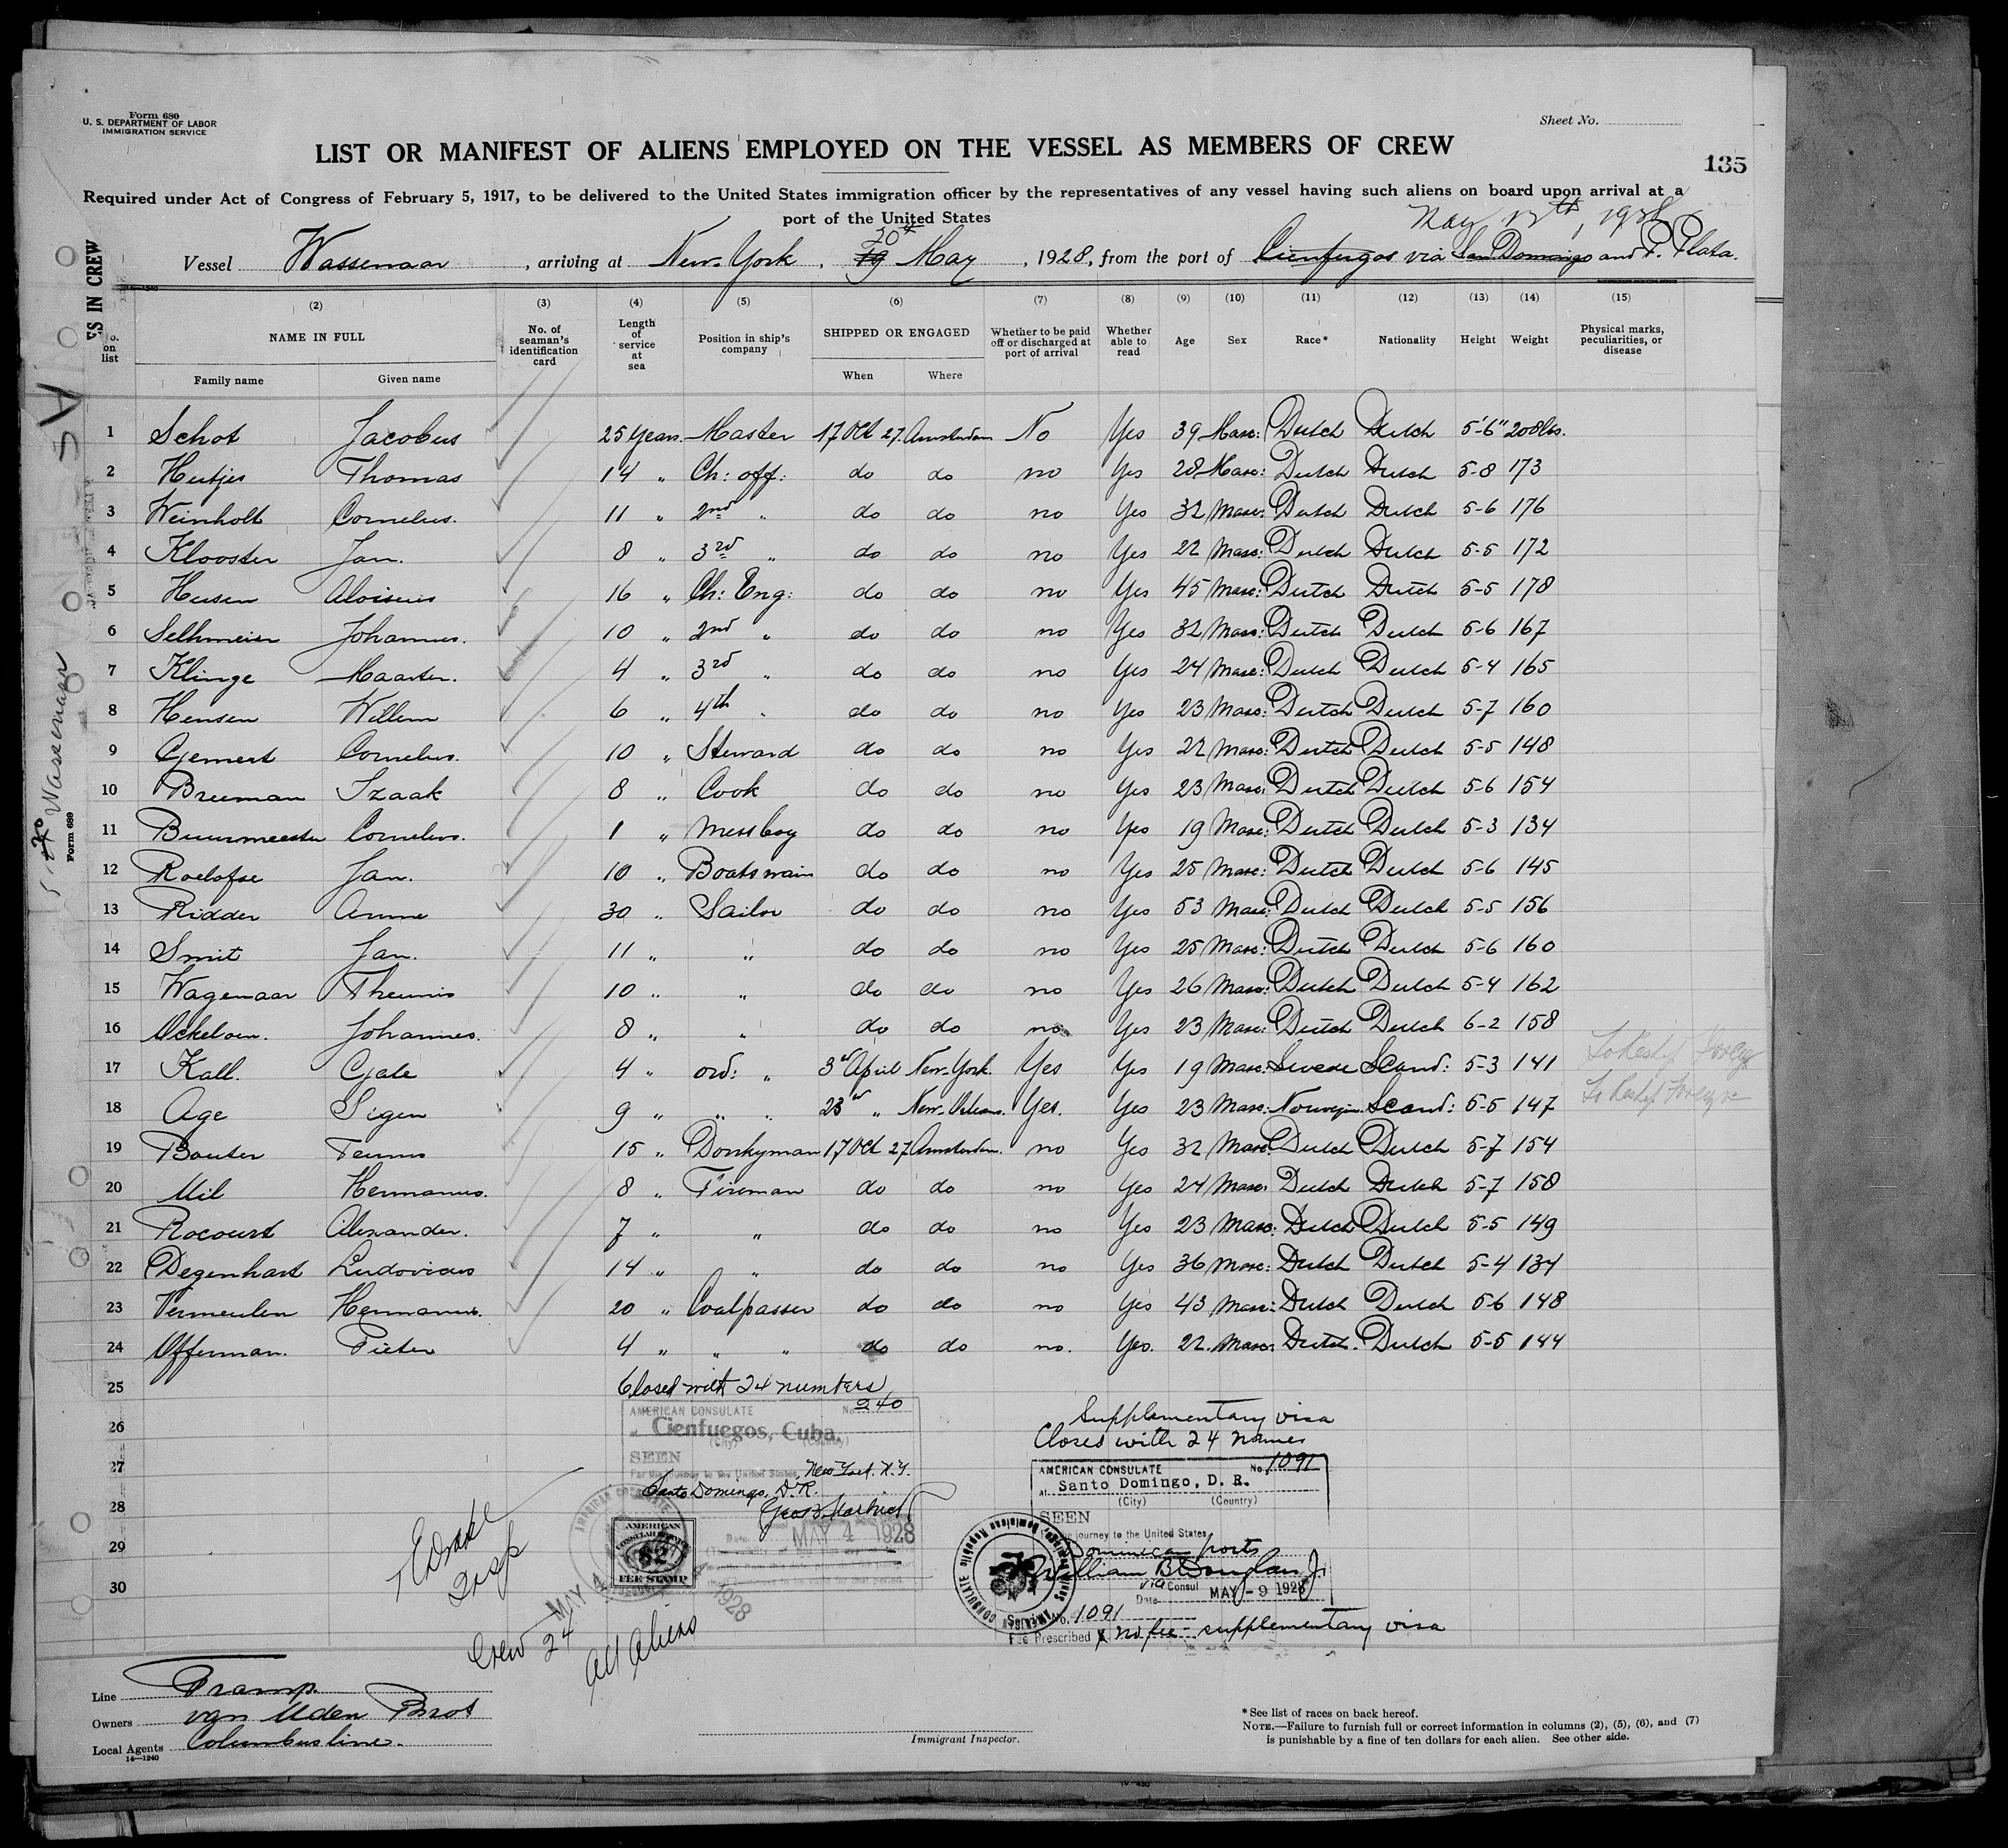 Form 680
U. S. DEPARTMENT OF LABOR
IMMIGRATION SERVICE
Sheet No.
LIST OR MANIFEST OF ALIENS EMPLOYED ON THE VESSEL AS MEMBERS OF CREW
135
Required under Act of Congress of February 5, 1917, to be delivered to the United States immigration officer by the representatives of any vessel having such aliens on board upon arrival at a
port of the United States
May 12th, 1928
20th
Vessel Wassenaar, arriving at New York, 19 May, 1928, from the port of Cienfuegos via San Domingo and P. Plata.
(2) (3) (4) (5) (6) (7) (8) (9) (10) (11) (12) (13) (14) (15)
No. on list NAME IN FULL No. of seaman's identification card Length of service at sea Position in ship's company SHIPPED OR ENGAGED Whether to be paid off or discharged at port of arrival Whether able to read Age Sex Race* Nationality Height Weight Physical marks, peculiarities, or disease
Family name Given name When Where
1 Schot Jacobus 25 years Master 17 Oct 27. Amsterdam No Yes 39 Masc: Dutch Dutch 5'-6" 208 lbs.
2 Heitjes Thomas 14 " Ch: off: do do no Yes 28 Masc: Dutch Dutch 5-8 173
3 Weinholt Cornelius. 11 " 2nd " do do no Yes 32 Masc: Dutch Dutch 5-6 176
4 Klooster Jan. 8 " 3rd " do do no Yes 22 Masc: Dutch Dutch 5-5 172
5 Heesen Aloisius 16 " Ch: Eng: do do no Yes 45 Masc: Dutch Dutch 5-5 178
6 Selhmeier Johannes. 10 " 2nd " do do no Yes 32 Masc: Dutch Dutch 5-6 167
7 Klinge Maarten. 4 " 3rd " do do no Yes 24 Masc: Dutch Dutch 5-4 165
8 Hensen Willem 6 " 4th " do do no Yes 23 Masc: Dutch Dutch 5-7 160
9 Gemert Cornelius. 10 " Steward do do no Yes 22 Masc: Dutch Dutch 5-5 148
10 Breeman Izaak 8 " Cook do do no Yes 23 Masc: Dutch Dutch 5-6 154
11 Buurmeester Cornelius. 1 " Messboy do do no Yes 19 Masc: Dutch Dutch 5-3 134
12 Roelofse Jan. 10 " Boatswain do do no Yes 25 Masc: Dutch Dutch 5-6 145
13 Ridder Anne 30 " Sailor do do no Yes 53 Masc: Dutch Dutch 5-5 156
14 Smit Jan. 11 " " do do no Yes 25 Masc: Dutch Dutch 5-6 160
15 Wagenaar Theunis 10 " " do do no Yes 26 Masc: Dutch Dutch 5-4 162
16 Ockeloen. Johannes. 8 " " do do no Yes 23 Masc: Dutch Dutch 6-2 158
17 Kall. Gale 4 " ord: " 3rd April New-York. Yes Yes 19 Masc: Swede Scand: 5-3 141
18 Age Sigen 9 " " " 23rd " New-Orleans. Yes. Yes 23 Masc: Norwegian Scand: 5-5 147
19 Bouter Teunis 15 " Donkyman 17 Oct 27 Amsterdam. no Yes 32 Masc: Dutch Dutch 5-7 154
20 Mil Hermanus. 8 " Fireman do do no Yes 24 Masc: Dutch Dutch 5-7 158
21 Rocourt Alexander. 7 " " do do no Yes 23 Masc: Dutch Dutch 5-5 149
22 Degenhart Ludovicus 14 " " do do no Yes 36 Masc: Dutch Dutch 5-4 134
23 Vermeulen Hermanus. 20 " Coalpasser do do no Yes 43 Masc: Dutch Dutch 5-6 148
24 Offerman. Pieter 4 " " " do do no. Yes. 22. Masc: Dutch. Dutch 5-5 144
25 Closed with 24 numbers
26
27
28
29
30
AMERICAN CONSULATE No. 240
at Cienfuegos, Cuba.
(City) (Country)
SEEN
For the journey to the United States, New York. N.Y.
Santo Domingo, D.R.
Date MAY 4 1928
AMERICAN
CONSULAR SERVICE
$2
FEE STAMP
MAY 4 1928
Supplementary visa
Closed with 24 names
AMERICAN CONSULATE No. 1091
at Santo Domingo, D. R.
(City) (Country)
SEEN
journey to the United States
Dominican ports
William B. Douglas Jr
Vice Consul
Date MAY - 9 1928
Service No. 1091
Fee Prescribed No fee - supplementary visa
Crew 24
All Aliens
Line Tramp.
Owners van Uden Bros
Local Agents Columbus line.
14—1240
Immigrant Inspector.
*See list of races on back hereof.
NOTE.—Failure to furnish full or correct information in columns (2), (5), (6), and (7)
is punishable by a fine of ten dollars for each alien. See other side.
Form 680
Wassenaar